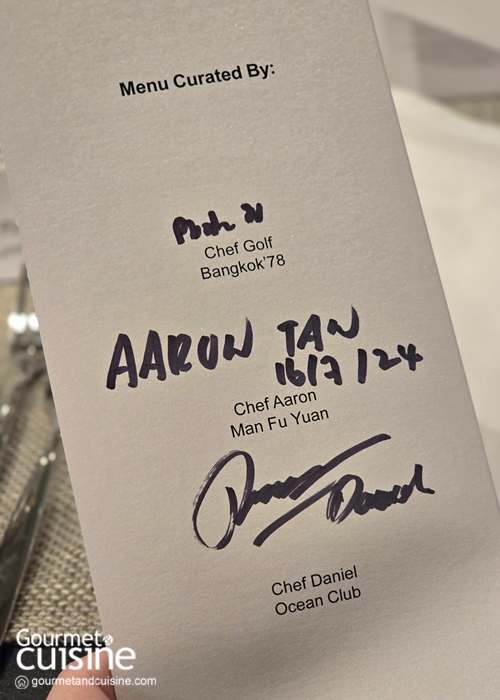 Menu Curated By:
Chef Golf
Bangkok'78
AARON TAN
16/7/24
Chef Aaron
Man Fu Yuan
Daniel
Chef Daniel
Ocean Club
Gourmet
cuisine
gourmetandcuisine.com